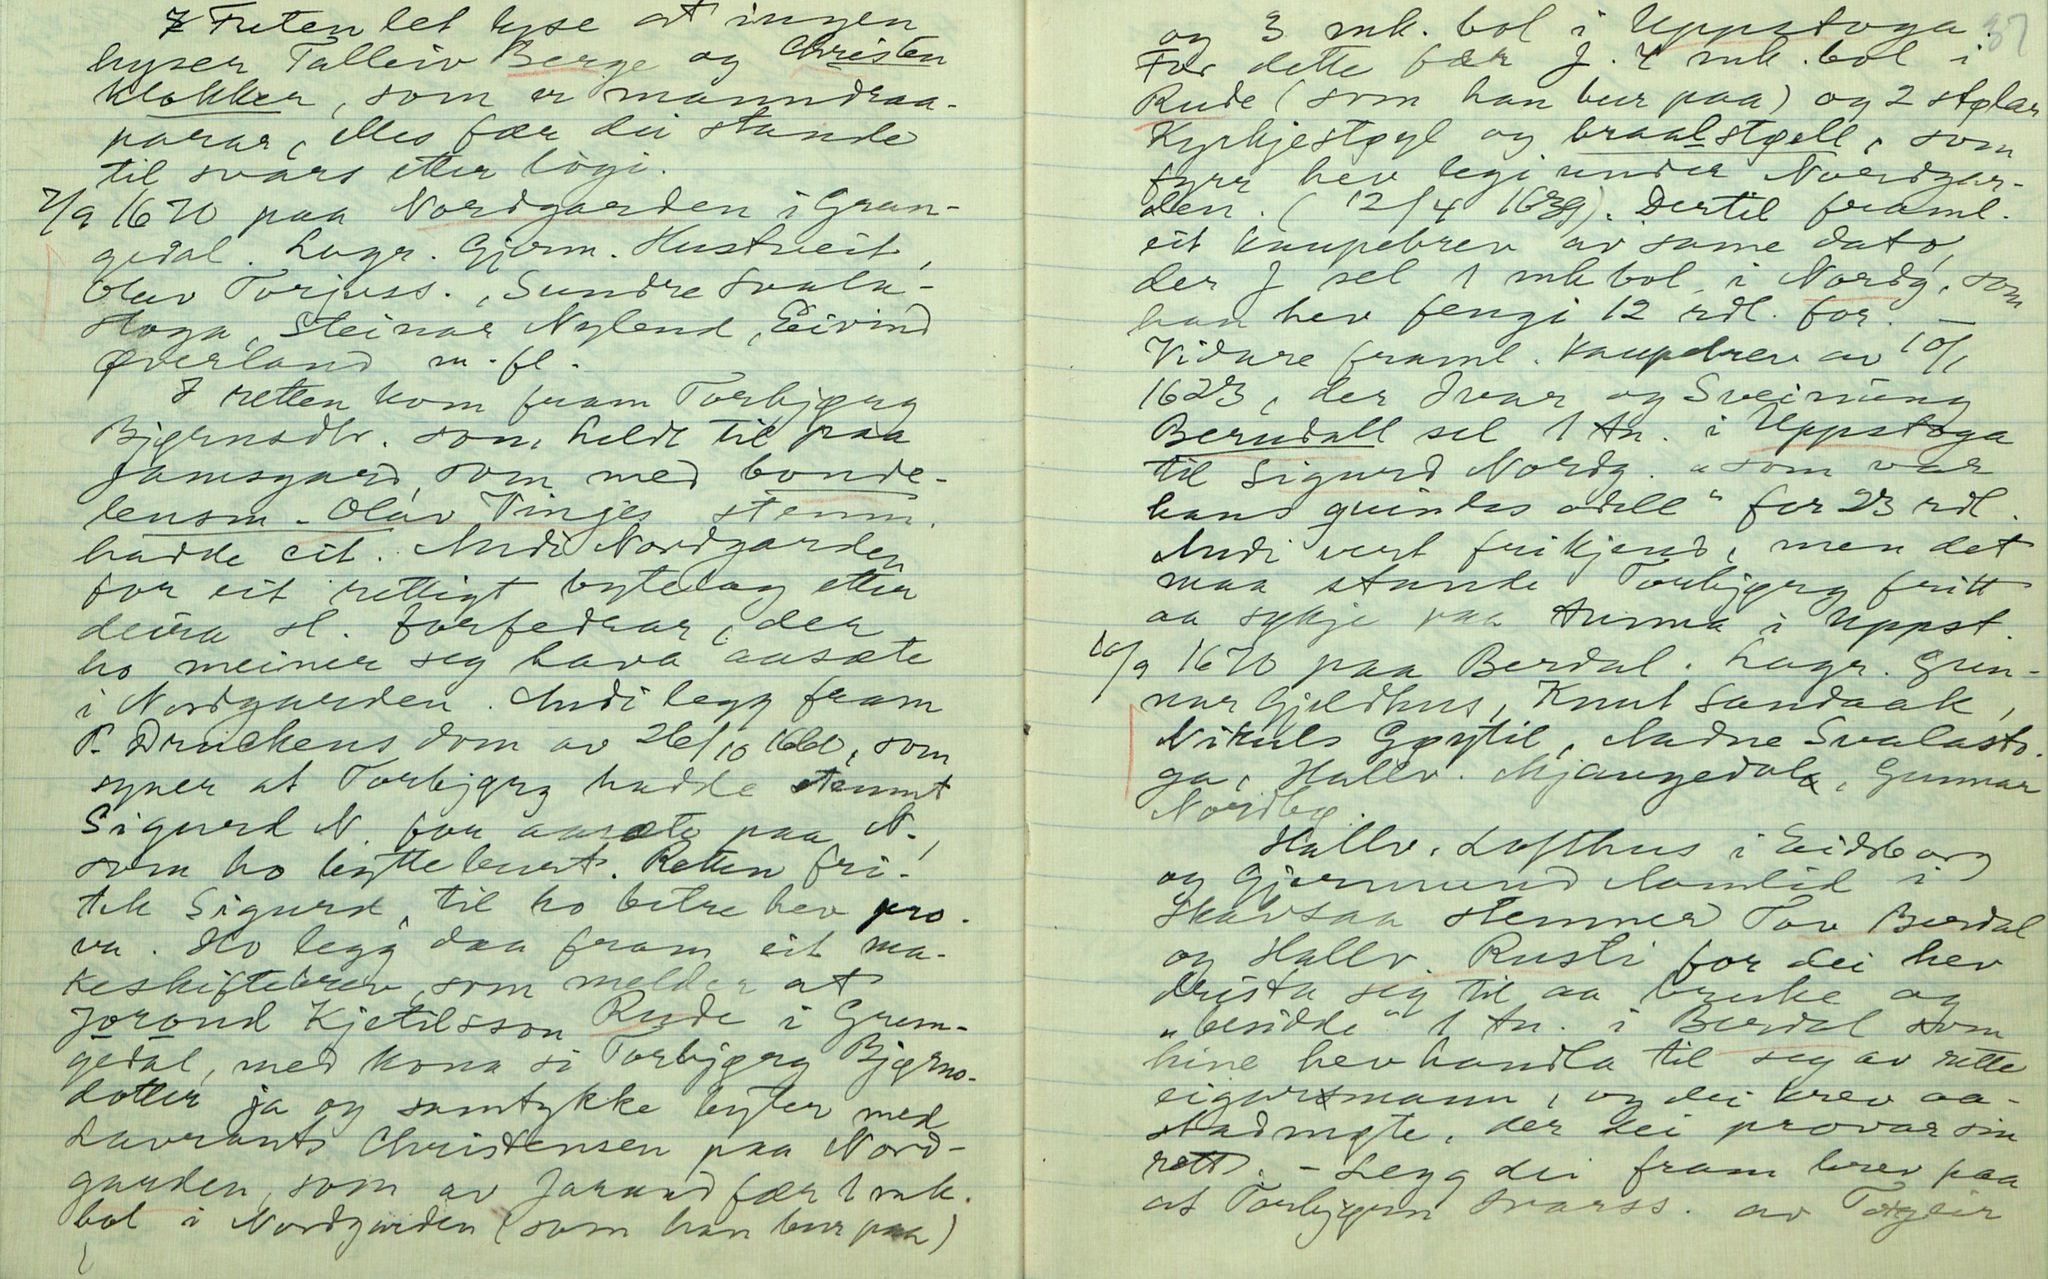 Futen let lyse at ingen
hyser Talleiv Berge og Christen
Klokker, som er manndraa-
parar, elles fær dei stande
til svars etter logi.
7/9 1670 paa Nordgarden i Gran-
gedal. Lagr. Gjerm. Hustveit,
Olav Torjuss., Sundre Svala-
stoga, Steinar Nylend, Eivind
Øverland m. fl.
I retten kom fram Torbjørg
Bjørnsdtr. som heldt til paa
Jamsgard, som med bonde-
lensm. Olav Tinges stemn.
hadde cit. Andi Nordgarden
for eit rettigt bytelag etter
deira sl. forfedrar, der
ho meiner seg hava aasæte
i Nordgarden. Andi legg fram
P. Druckens dom av 26/10 1660, som
syner at Torbjørg hadde stemnt
Sigurd N. for aasæte paa N.,
som ho bytte burt. Retten fri-
tek Sigurd, til ho betre hev pro-
va. Ho legg daa fram eit ma-
keskiftebrev, som melder at
Jorond Kjetilsson Rude i Gran-
gedal, med kona si Torbjørg Bjørns-
dotter ja og samtykke byter med
Lavrants Christensen paa Nord-
garden, som av Jorand fær 1 mk.
bol i Nordgarden (som han bur paa)
og 3 mk. bol i Uppstoga. 37
For dette fær J. 4 mk. bol i
Rude (som han bur paa) og 2 stølar
Kyrkjestøyl og braalstøll, som
fyrr hev legi under Nordgar-
den. (12/4 1639). Dertil framl.
eit kaupebrev av same dato,
der J sel 1 mk bol i Nordg, som
han hev fengi 12 rdl. for. —
Vidare framl. kaupebrev av 10/1
1623, der Ivar og Sveinung
Berudall sel 1 tn. i Uppstoga
til Sigurd Nordg. "som var
hans quindes odell" for 23 rdl.
Andi vert frikjend, men det
maa stande Torbjørg fritt
aa sykje paa tunna i Uppst.
10/9 1670 paa Berdal. Lagr. Gun-
nar Gjeldhus, Knut Sandaak,
Nikuls Gøytil, Aadne Svalasto-
ga, Hallv. Mjaugedal, Gunnar
Nordbø.
Hallv. Lofthus i Eidsborg
og Gjermund Aamlid i
Skavsaa stemner Tov Berdal
og Hallv. Rusti for dei hev
drista seg til aa bruke og
"besidde" 1 tn. i Berdal som
hine hev handla til seg av rette
eigarsmann, og dei krev aa-
stadmøte, der dei provar sin
rett. – Legg dei fram brev paa
at Torbjørn Ivarss. av Torgeir